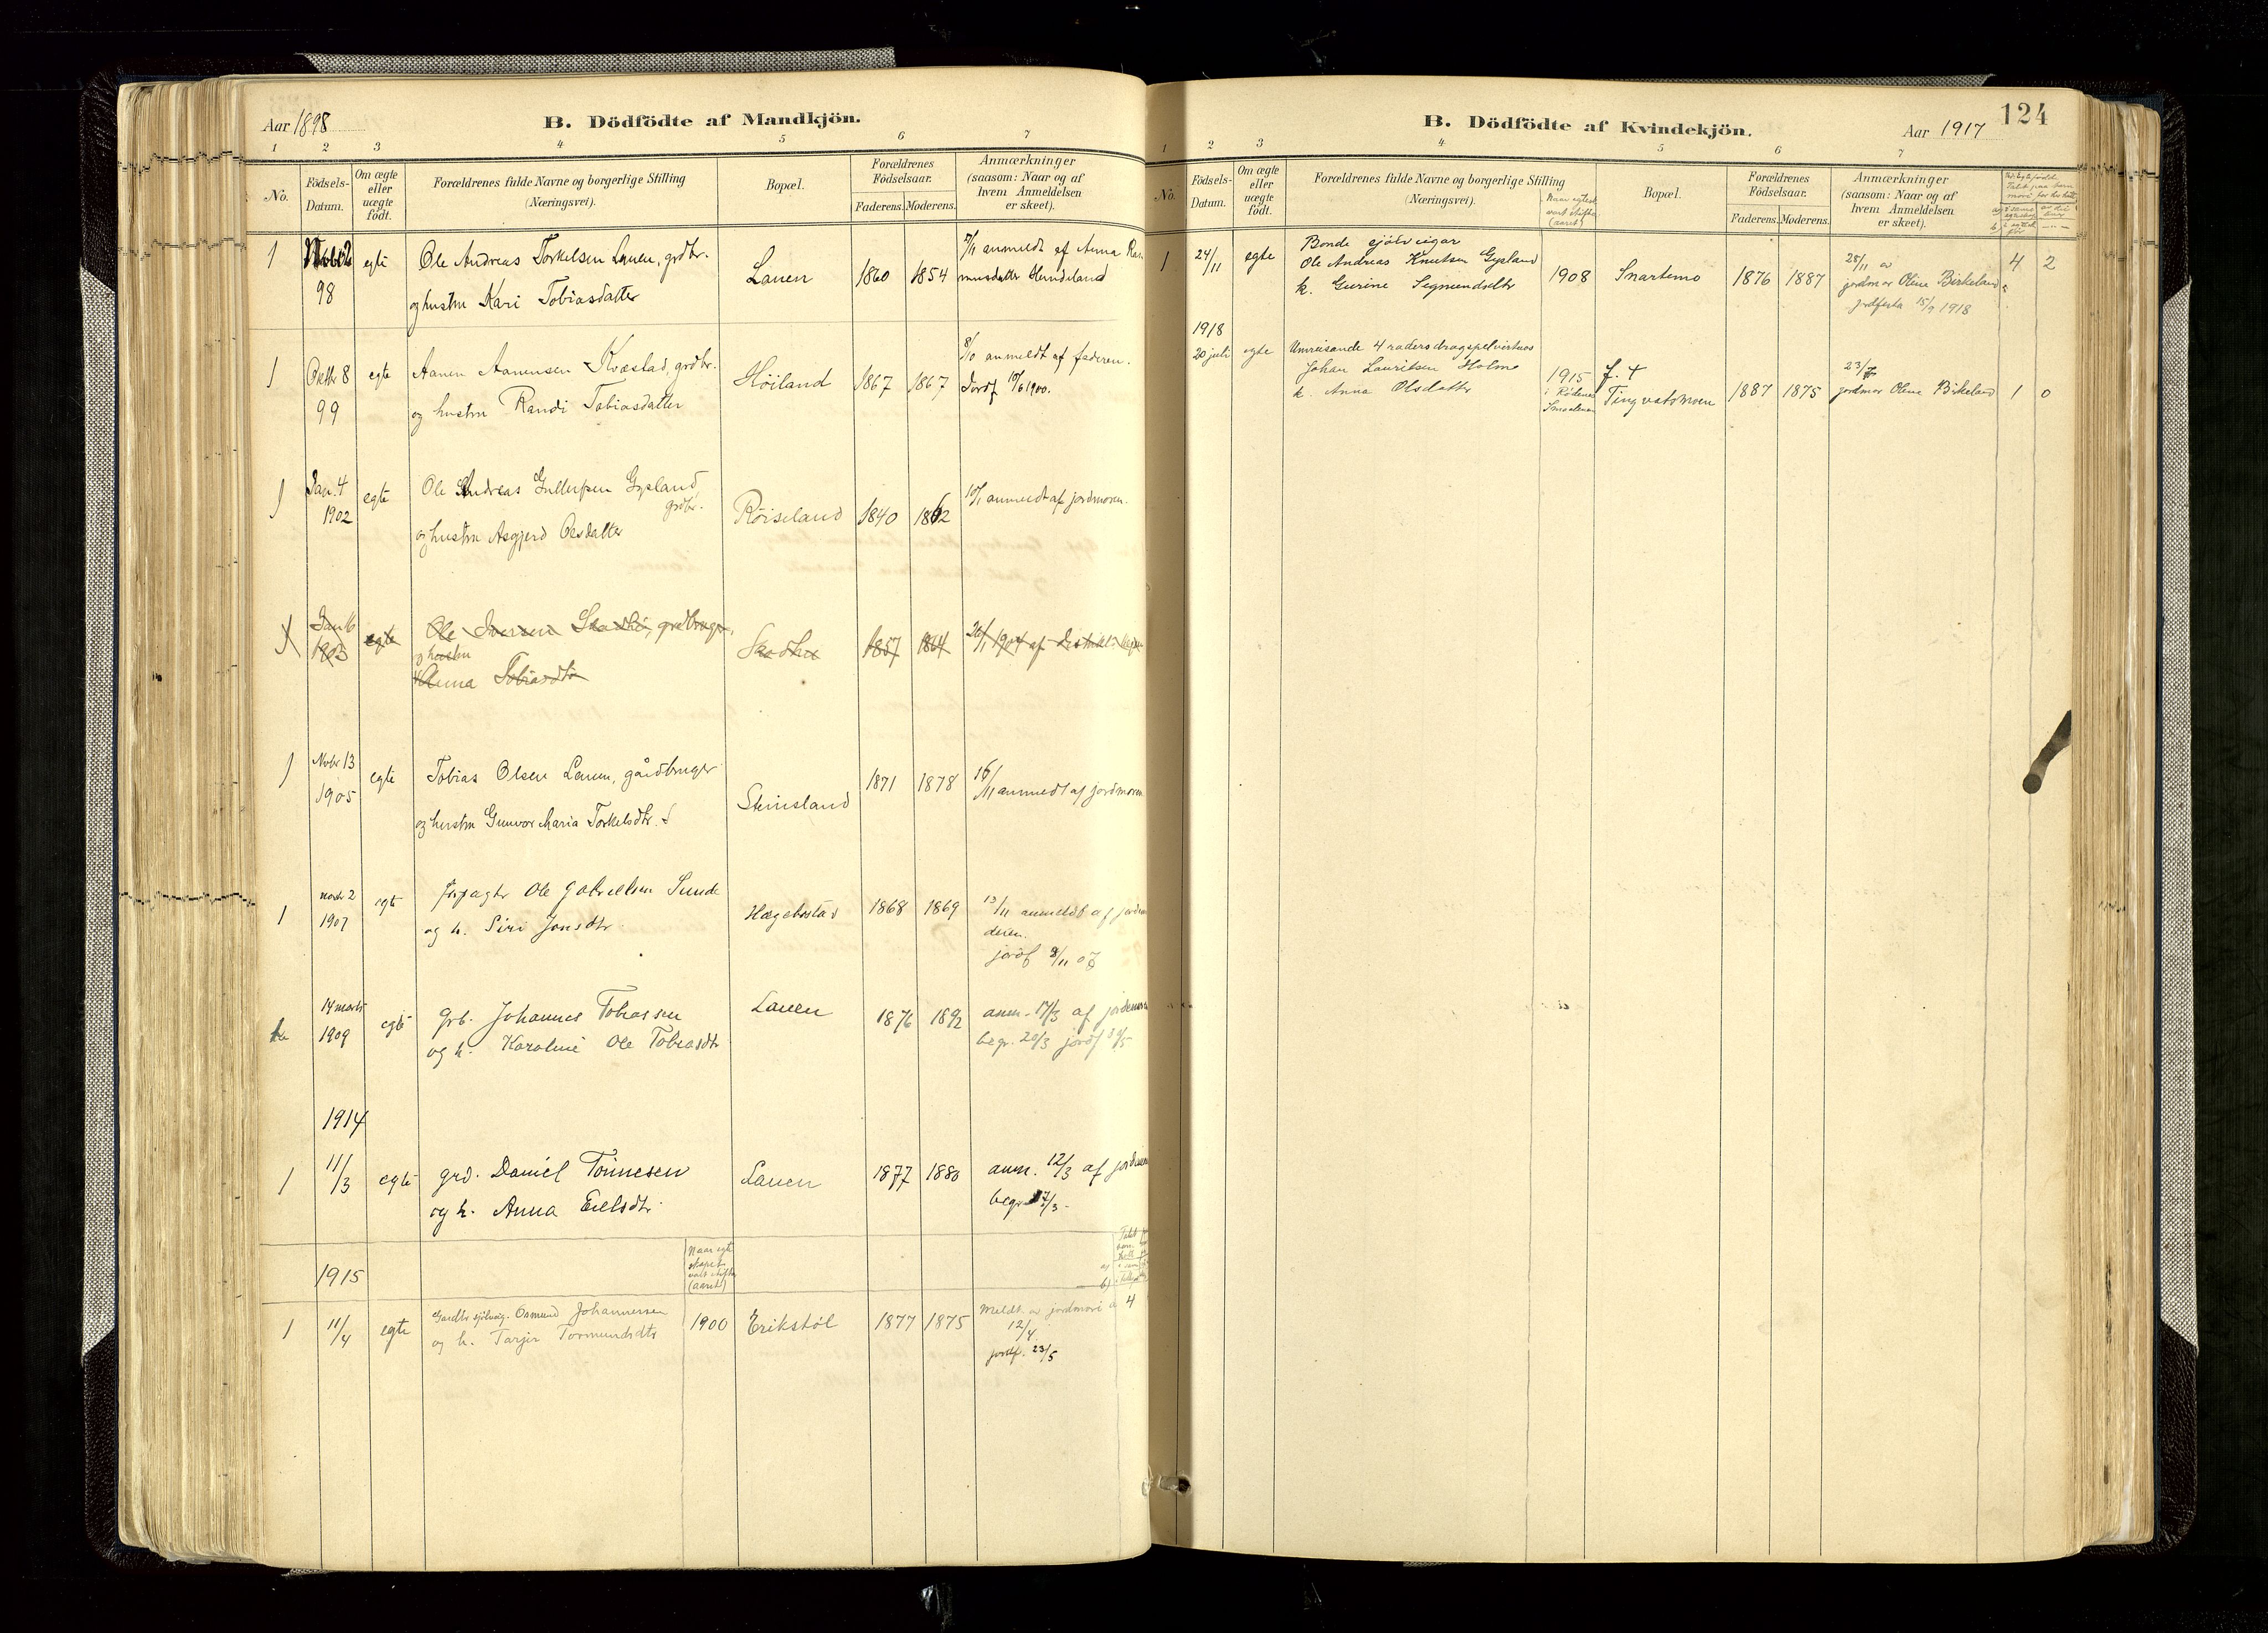 Aar 1898
B. Dödfödte af Mandkjön.
1 2 3 4 5 6 7
No.
Födsels-Datum.
Om ægte eller uægte födt.
Forældrenes fulde Navne og borgerlige Stilling (Næringsvei).
Bopæl.
Forældrenes Födselsaar.
Faderens. Moderens.
Anmærkninger (saasom: Naar og af hvem Anmeldelsen er skeet).
1 98 egte Ole Andreas Torkelsen Lauen, grdbr. Lauen 1860 1854 anmeldt af Anna
og hustru Kari Tobiasdatter
1 Oktbr 8 egte Aanen Aanensen Kvæstad, grdbr. Höiland 1867 1867 8/10 anmeldt af faderen.
99 og hustru Randi Tobiasdatter Jordf 10/6 1900.
1 Jan. 4 egte Ole Andreas Gysland grdbr. Röiseland 1840 1862 10/1 anmeldt af jordmoren.
1902 og hustru Asgjerd Olsdatter
1 Jan 16 egte Ole Iversen grdbruger, 1857 1864
1903 og hustru
Anna Tobiasdtr
1 Novbr 13 egte Tobias Olsen Lauen, gårdbruger Skeisland 1871 1878 16/11 anmeldt af jordmoren
1905 og hustru Gunvor Maria Torkelsdtr.
1 novbr 2 egte forpagter Ole Gabrielsen Sunde Hægebostad 1868 1869 13/11 anmeldt af
1907 og h. Siri Jonsdtr jordf 8/11 07
14 marts egte Grb. Johannes Tobiassen Lauen 1876 1892 anm. 17/3 af jordemoren
1909 og h. Karoline Ole Tobiasdtr begr. 20/3 jordf 31/5
1914
1 11/3 egte grd. Daniel Tönnesen Lauen 1877 1880 anm. 12/3 af
og h. Anna Eielsdtr. begr. 17/3.
Naar egteskapet vart stifta (aaret)
1915
1 11/4 egte Osmund Johannessen 1900 Erikstöl 1877 1875 Meldt av jordmori 4
og h. Tarjer Tormundsdtr 12/4.
jordf. 23/5
B. Dödfödte af Kvindekjön.
Aar 1917
124
1 2 3 4 5 6 7
No.
Födsels-Datum.
Om ægte eller uægte födt.
Forældrenes fulde Navne og borgerlige Stilling (Næringsvei).
Naar egtesk. vart stifta (aaret)
Bopæl.
Forældrenes Födselsaar.
Faderens. Moderens.
Anmærkninger (saasom: Naar og af hvem Anmeldelsen er skeet).
1 24/11 egte Bonde sjölveigar
Ole Andreas Knutsen Gysland 1908 Snartemo 1876 1887 25/11 av 4 2
k. Gurine Segmundsdtr jordmor Olene Birkeland
jordfesta 15/9 1918
1918
20 juli egte Umreisande 4 raders dragspelvirtuos
Johan Lauritsen Holme 1915 f. t 23/7
k. Anna Olsdatter i Rödenes Smaalenene Tingvatsmoen 1887 1875 jordmor Olene Birkeland 1 0